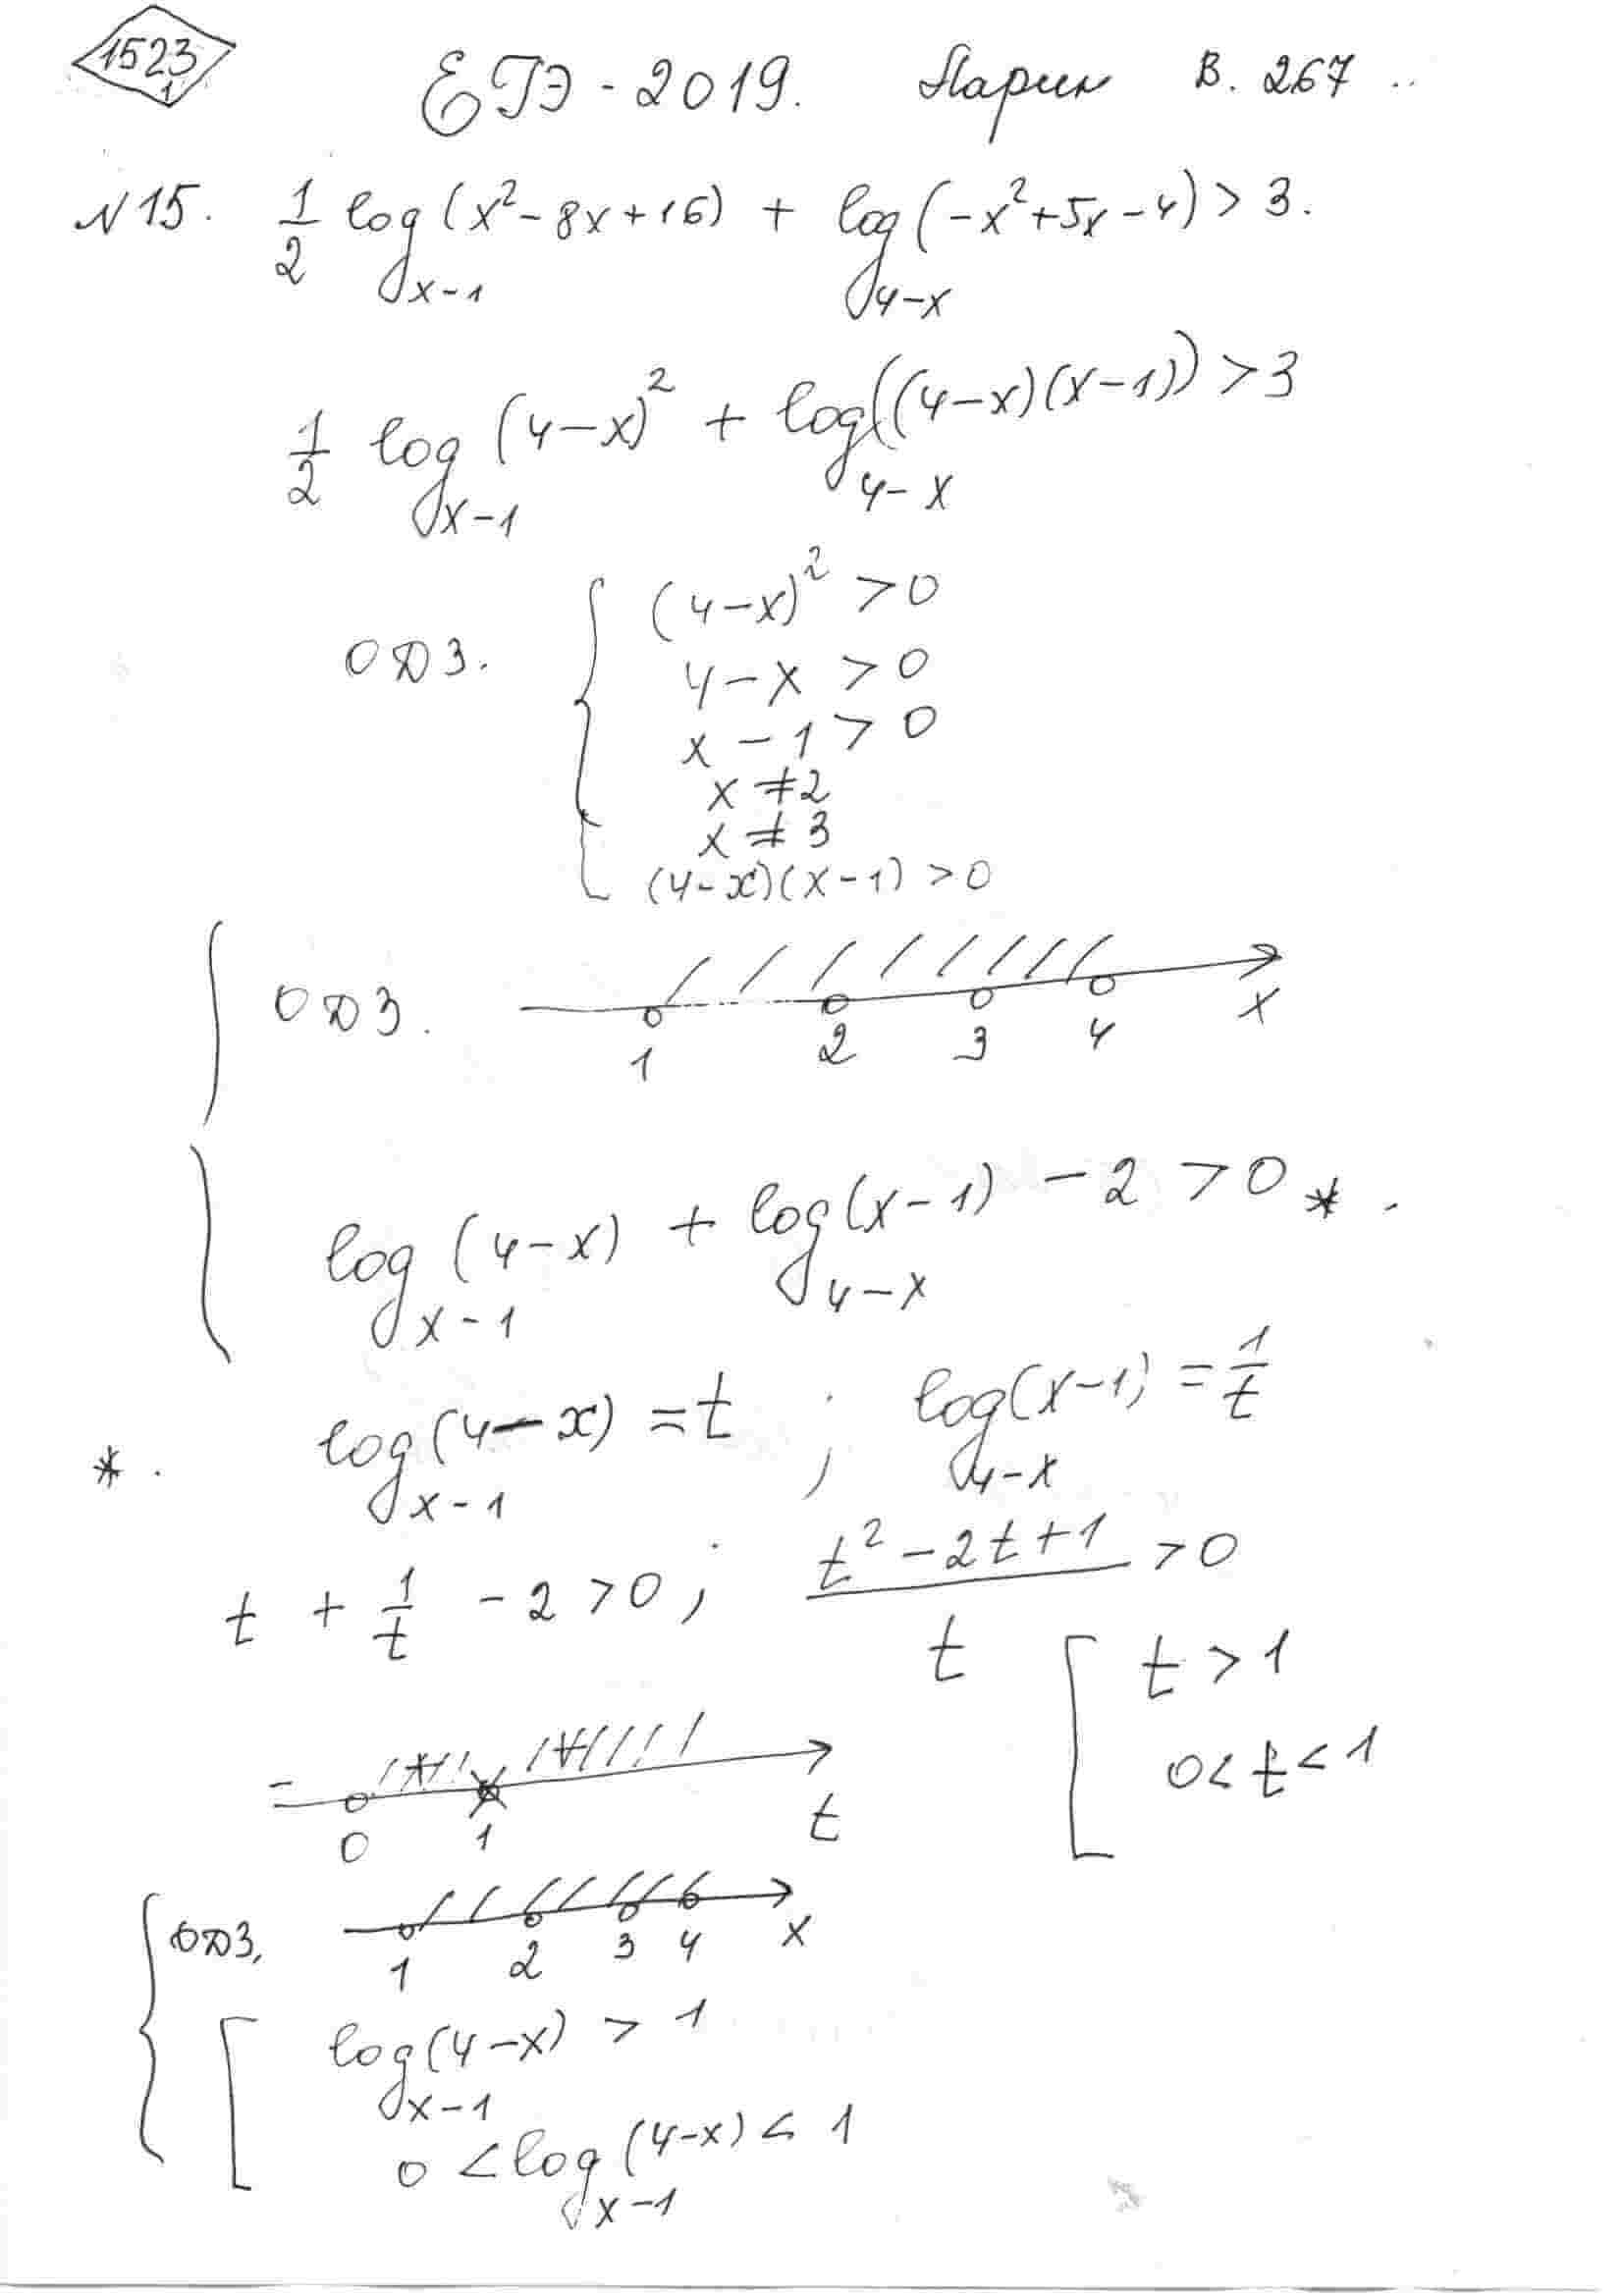 1523
1
ЕГЭ - 2019. Ларин В. 267 ..
N 15. 1/2 log_{x-1}(x² - 8x + 16) + log_{4-x}(-x² + 5x - 4) > 3.
1/2 log_{x-1}(4-x)² + log_{4-x}((4-x)(x-1)) > 3
(4-x)² > 0
4 - x > 0
ОДЗ.
x - 1 > 0
x ≠ 2
x ≠ 3
(4-x)(x-1) > 0
ОДЗ.
1 2 3 4 x
log_{x-1}(4-x) + log_{4-x}(x-1) - 2 > 0 * .
* . log_{x-1}(4-x) = t ; log_{4-x}(x-1) = 1/t
t + 1/t - 2 > 0 ; (t² - 2t + 1)/t > 0
t > 1
0 < t < 1
- + +
0 1 t
ОДЗ,
1 2 3 4 x
log_{x-1}(4-x) > 1
0 < log_{x-1}(4-x) < 1